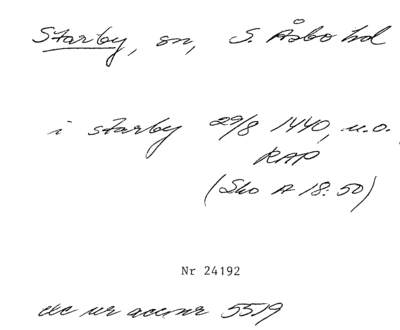 Starby, sn, S. Åsbo hd
i starby 29/8 1440, u.o.
RAP
(Sko A 18:50)
Nr 24192
exc ur accnr 5519